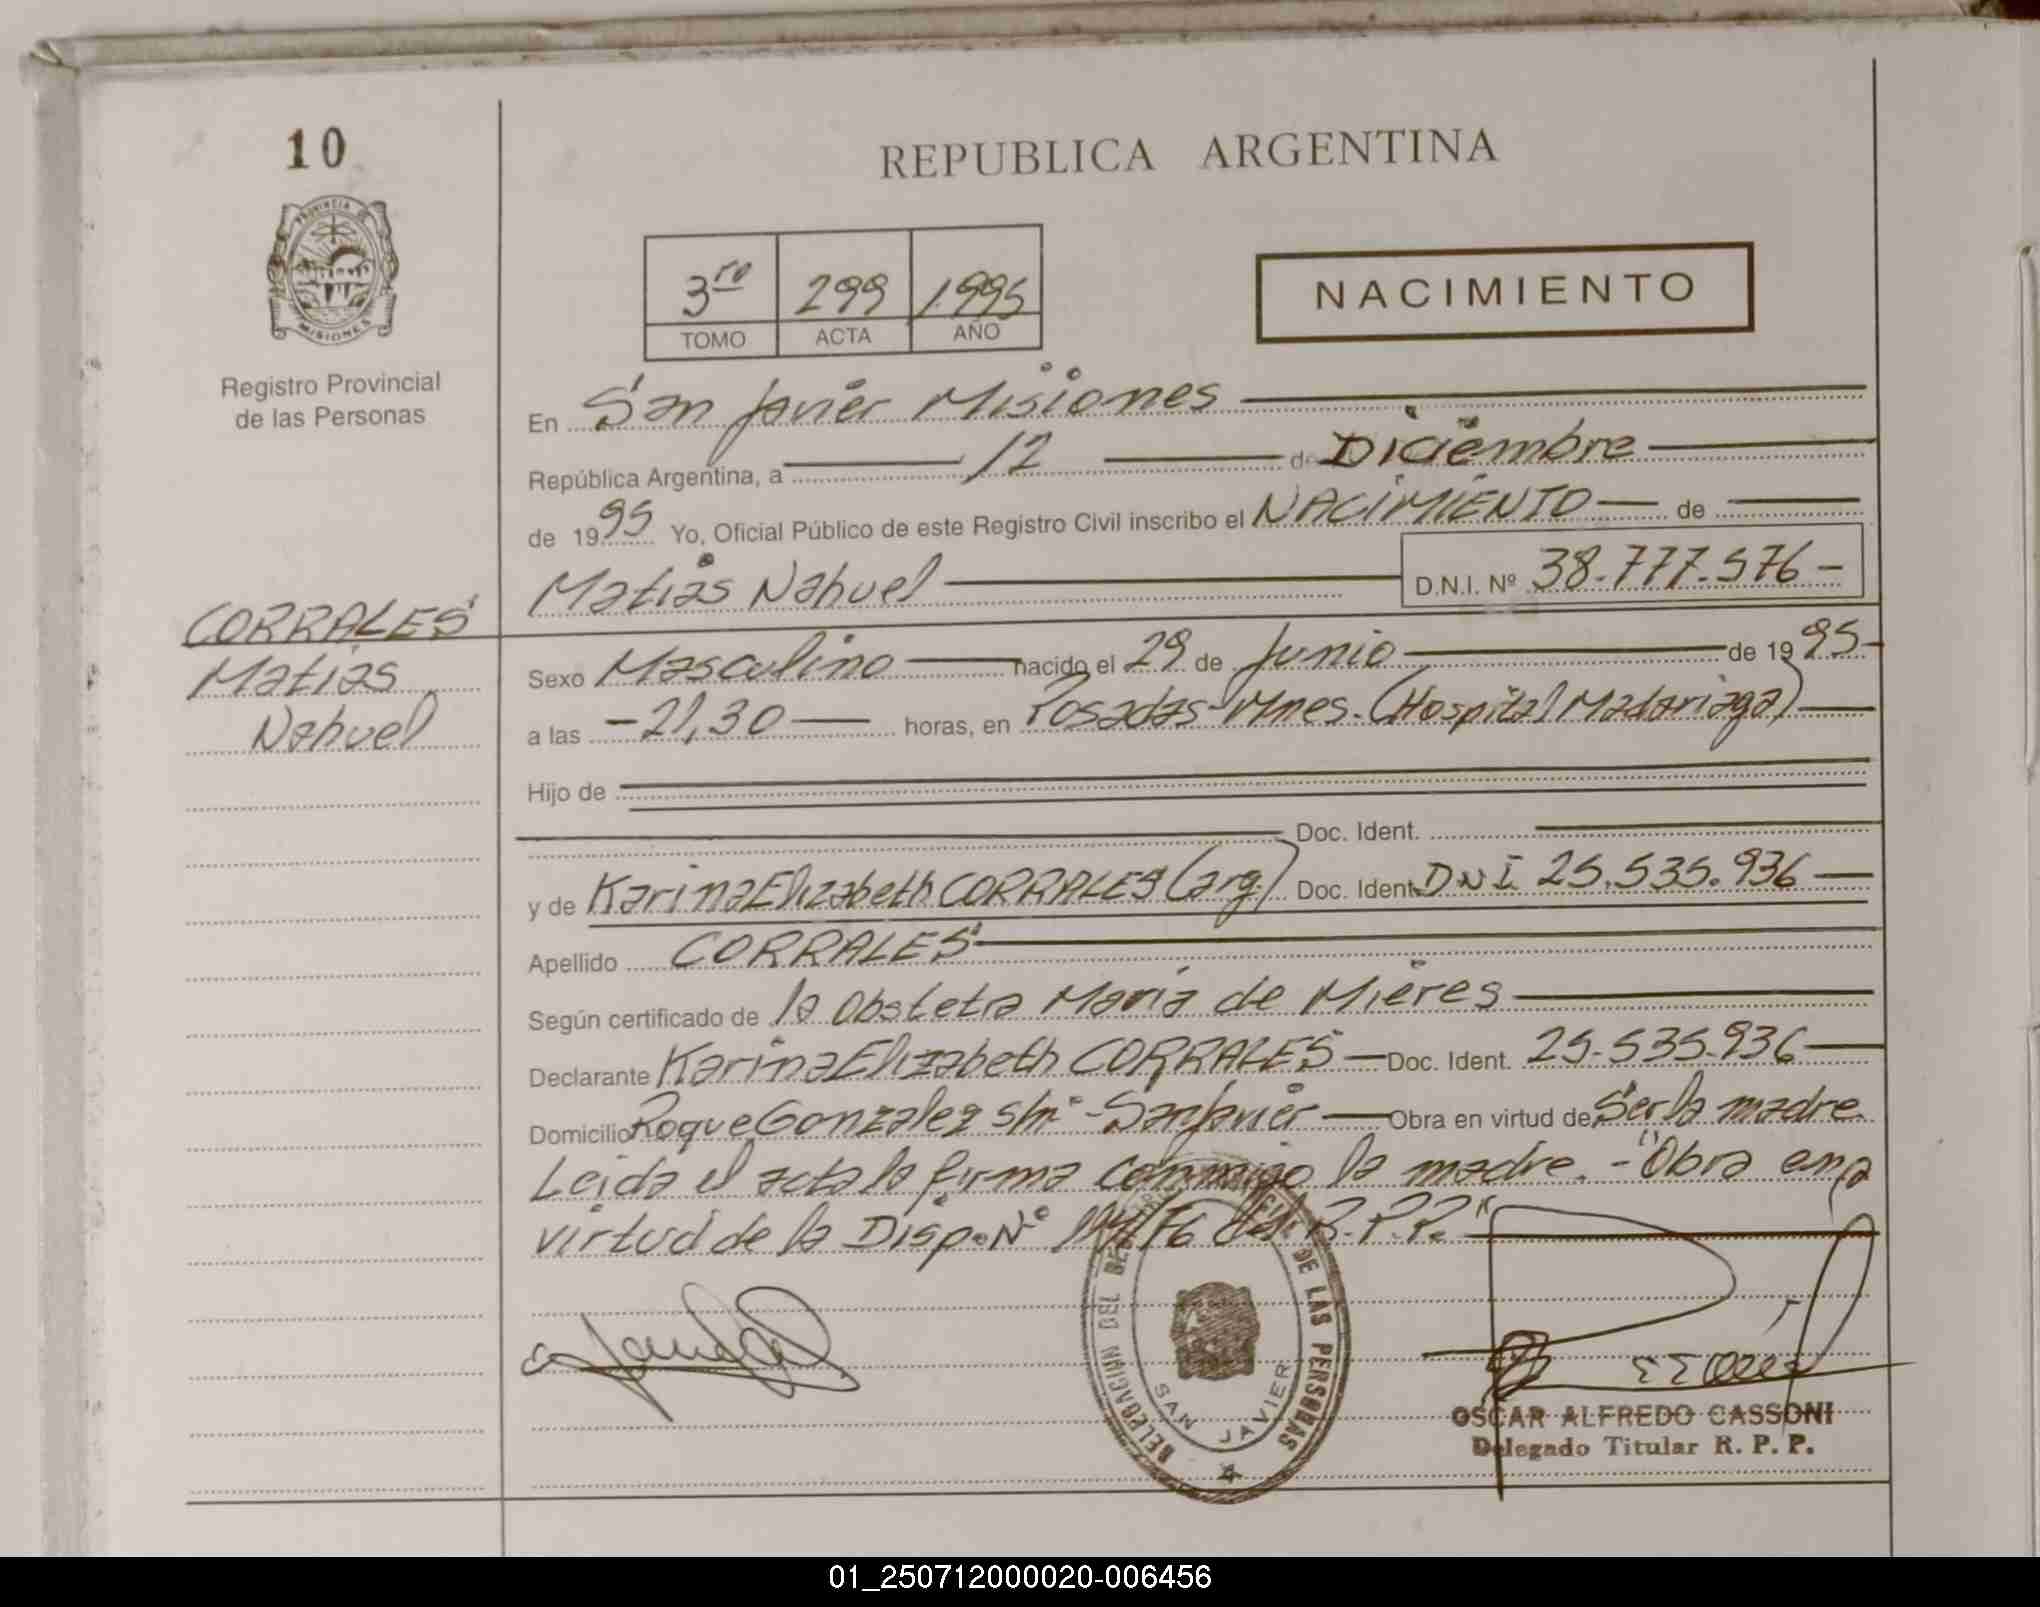 10
REPUBLICA ARGENTINA
PROVINCIA DE
MISIONES
3ro 299 1995
TOMO ACTA AÑO
NACIMIENTO
Registro Provincial
de las Personas
En San Javier Misiones
República Argentina, a 12 de Diciembre
de 1995 Yo, Oficial Público de este Registro Civil inscribo el NACIMIENTO de
Matias Nahuel D.N.I. Nº 38.777.576
CORRALES
Matias
Nahuel
Sexo Masculino nacido el 29 de Junio de 1995
a las 21,30 horas, en Posadas-Mnes. (Hospital Madariaga)
Hijo de
Doc. Ident.
y de Karina Elizabeth CORRALES (arg.) Doc. Ident. DNI 25.535.936
Apellido CORRALES
Según certificado de la Obstetra Maria de Mieres
Declarante Karina Elizabeth CORRALES Doc. Ident. 25.535.936
Domicilio Roque Gonzalez s/nº - San Javier Obra en virtud de Ser la madre.
Leida el acta la firma conmigo la madre.-"Obra en
virtud de la Disp. Nº /76 del R.P.P."
DELEGACION DEL DE LAS PERSONAS
SAN JAVIER
OSCAR ALFREDO CASSONI
Delegado Titular R. P. P.
01_250712000020-006456